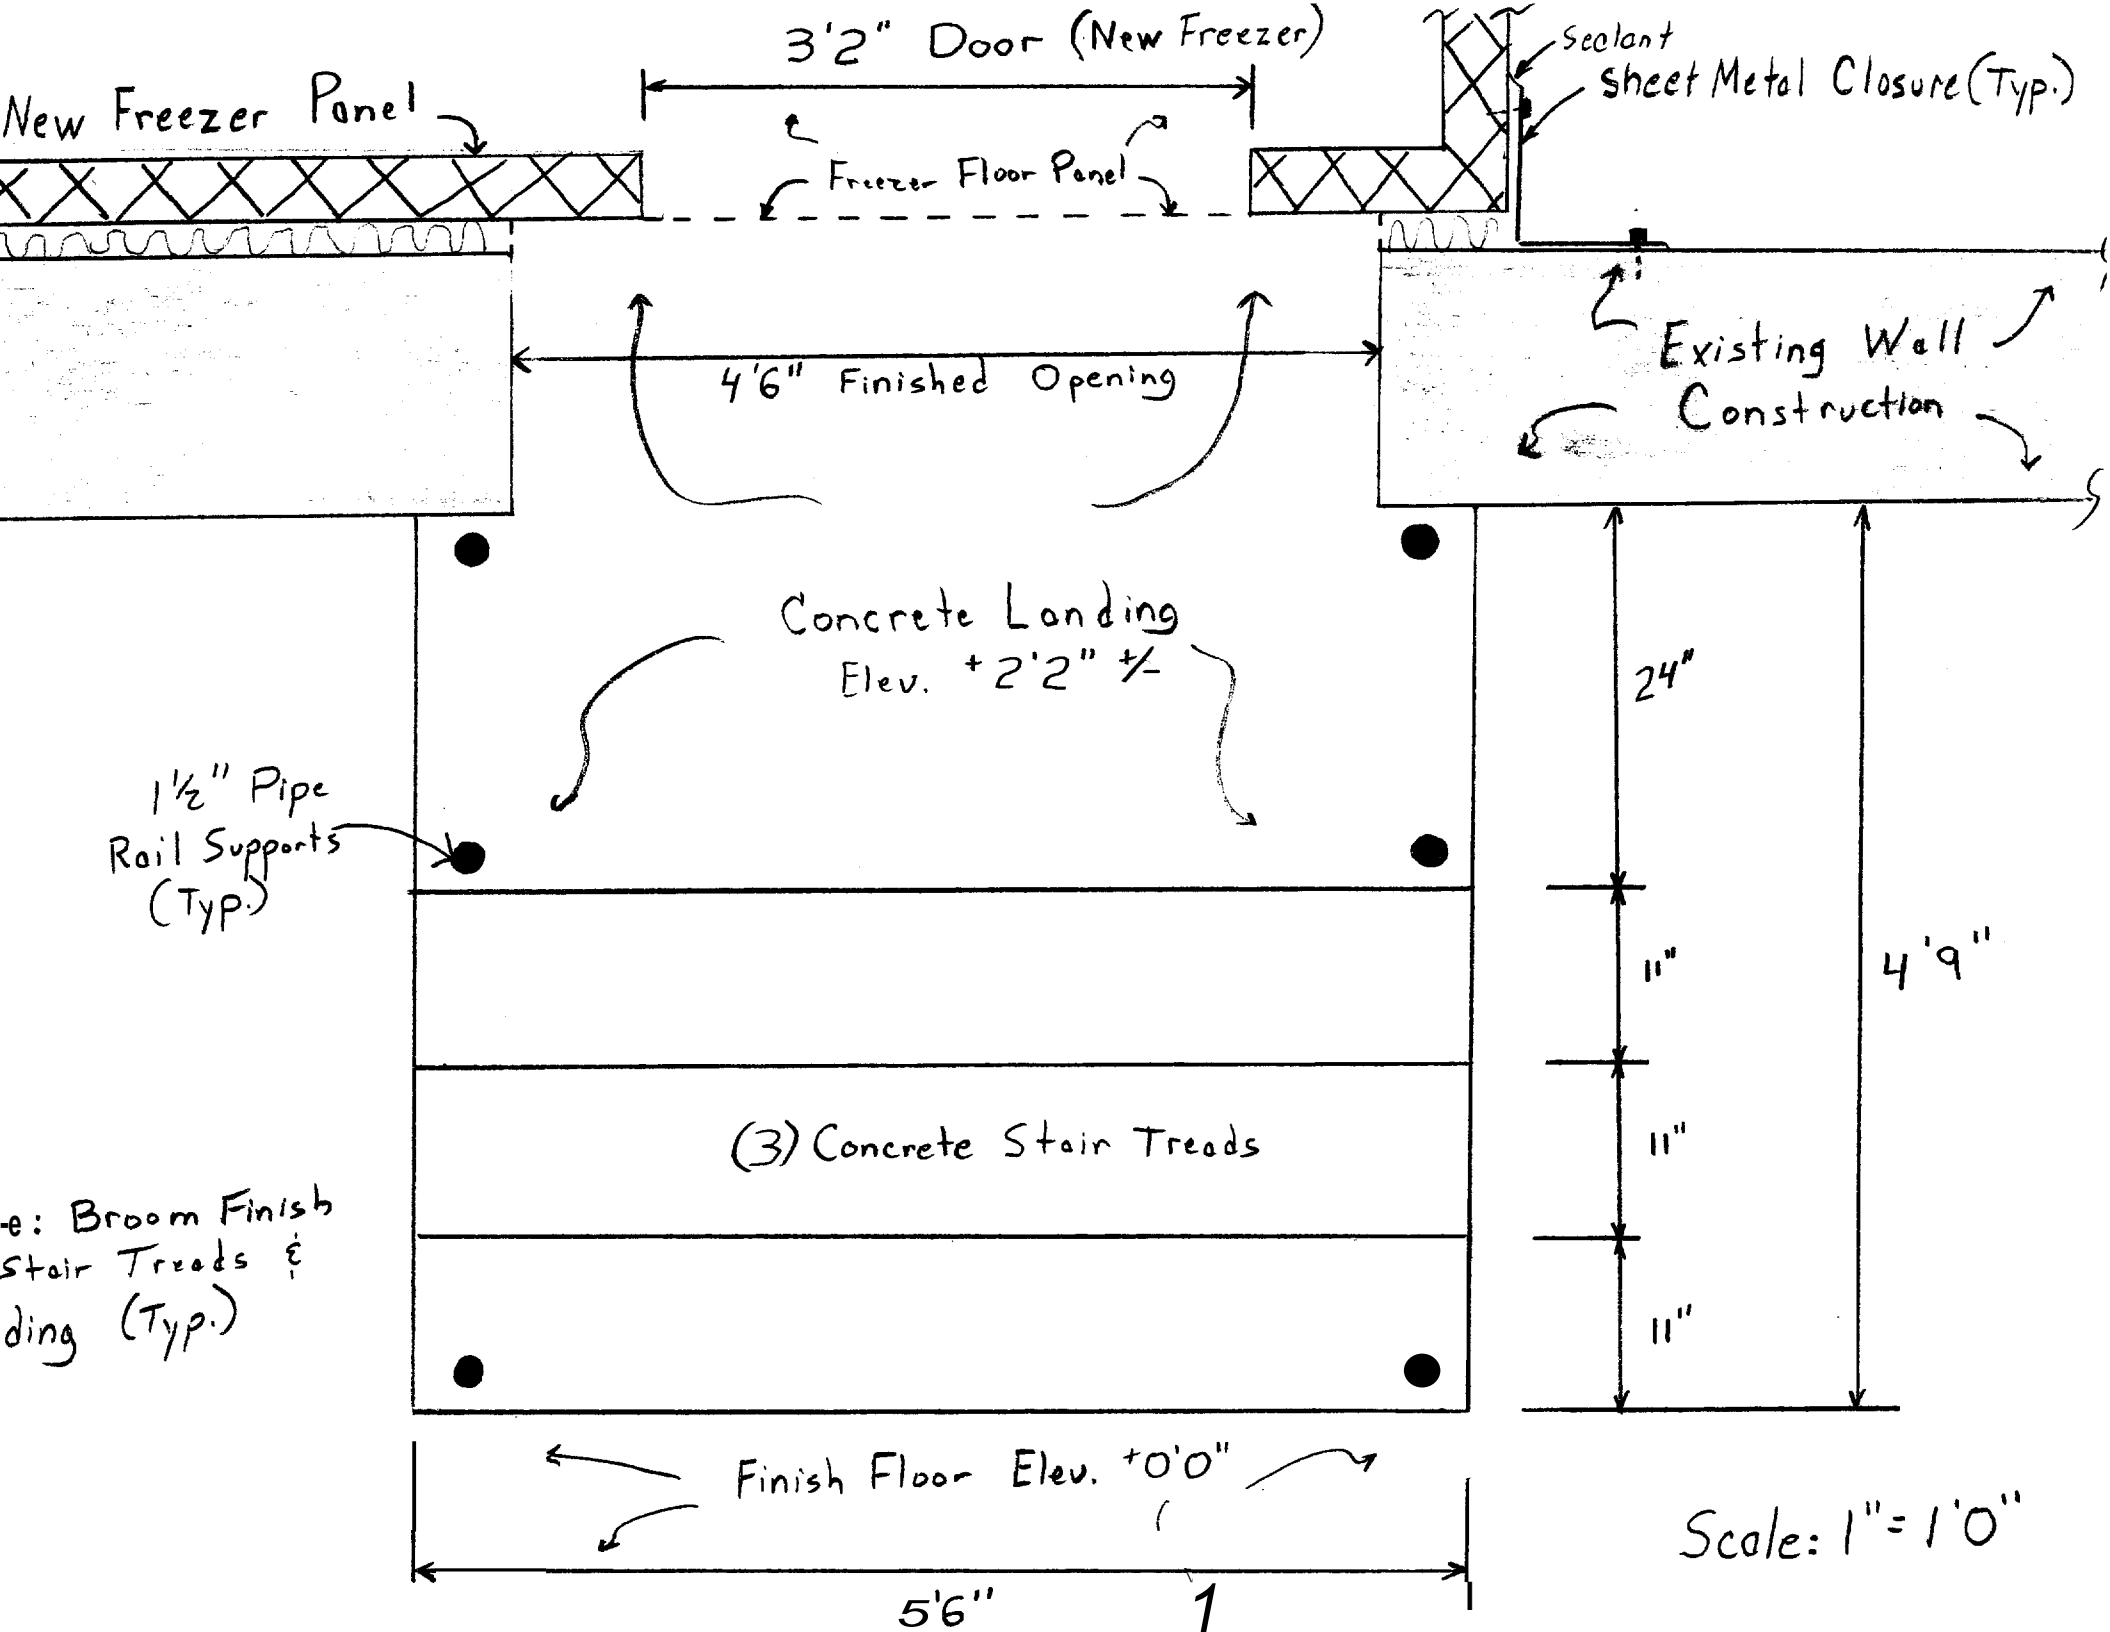 3'2" Door (New Freezer)
Sealant
Sheet Metal Closure (Typ.)
New Freezer Panel
Freezer Floor Panel
4'6" Finished Opening
Existing Wall
Construction
Concrete Landing
Elev. +2'2" +/-
24"
1½" Pipe
Rail Supports
(Typ.)
11"
4'9"
(3) Concrete Stair Treads
11"
e: Broom Finish
Stair Treads &
ding (Typ.)
11"
Finish Floor Elev. +0'0"
Scale: 1"=1'0"
5'6"
1